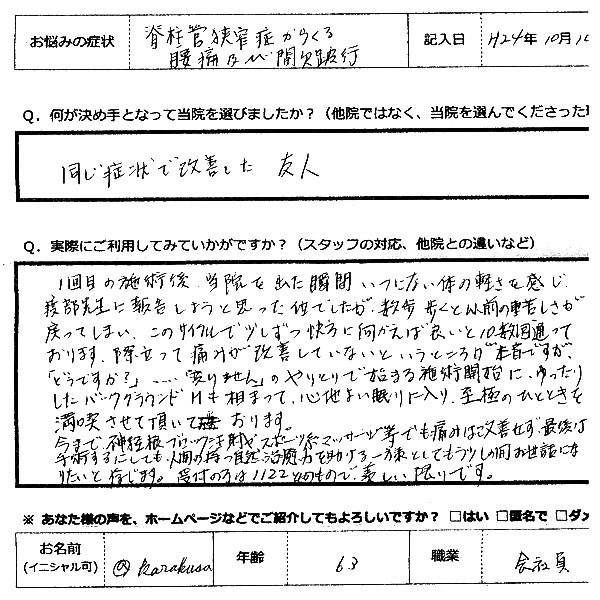 お悩みの症状 脊柱管狭窄症からくる 腰痛及び間欠跛行 記入日 H24年10月10
Q．何が決め手となって当院を選びましたか？（他院ではなく、当院を選んでくださった
同じ症状で改善した 友人
Q．実際にご利用してみていかがですか？（スタッフの対応、他院との違いなど）
1回目の施術後、当院を出た瞬間 いつにない体の軽さを感じ、
綾部先生に報告しようと思った位でしたが、数歩 歩くと以前の重苦しさが
戻ってしまい、このサイクルで少しずつ快方に向かえば良いと10数回通って
おります。際立って痛みが改善していないというところが本音ですが、
「どうですか？」……「変りません」のやりとりで始まる施術開始に、ゆったり
したバックグラウンドMも相まって、心地よい眠りに入り、至極のひとときを
満喫させて頂いて おります。
今まで、神経根ブロック注射やスポーツ系マッサージ等でも痛みは改善せず 最後は
手術するにしても、人間の持つ自然治癒力を助ける一方策としてもう少しの間お世話にな
りたいと存じます。受付の方は 美しい限りです。
※ あなた様の声を、ホームページなどでご紹介してもよろしいですか？ □はい □匿名で □ダメ
お名前 (イニシャル可) Karakusa 年齢 63 職業 会社員